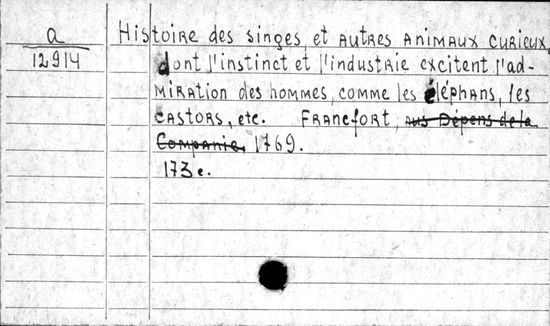 a
12914
Histoire des singes, et autres animaux curieux,
dont l'instinct et l'industrie excitent l'ad-
miration des hommes, comme les éléphans, les
castors, etc. Francfort, aus Dépens de la
Companie, 1769.
173 c.